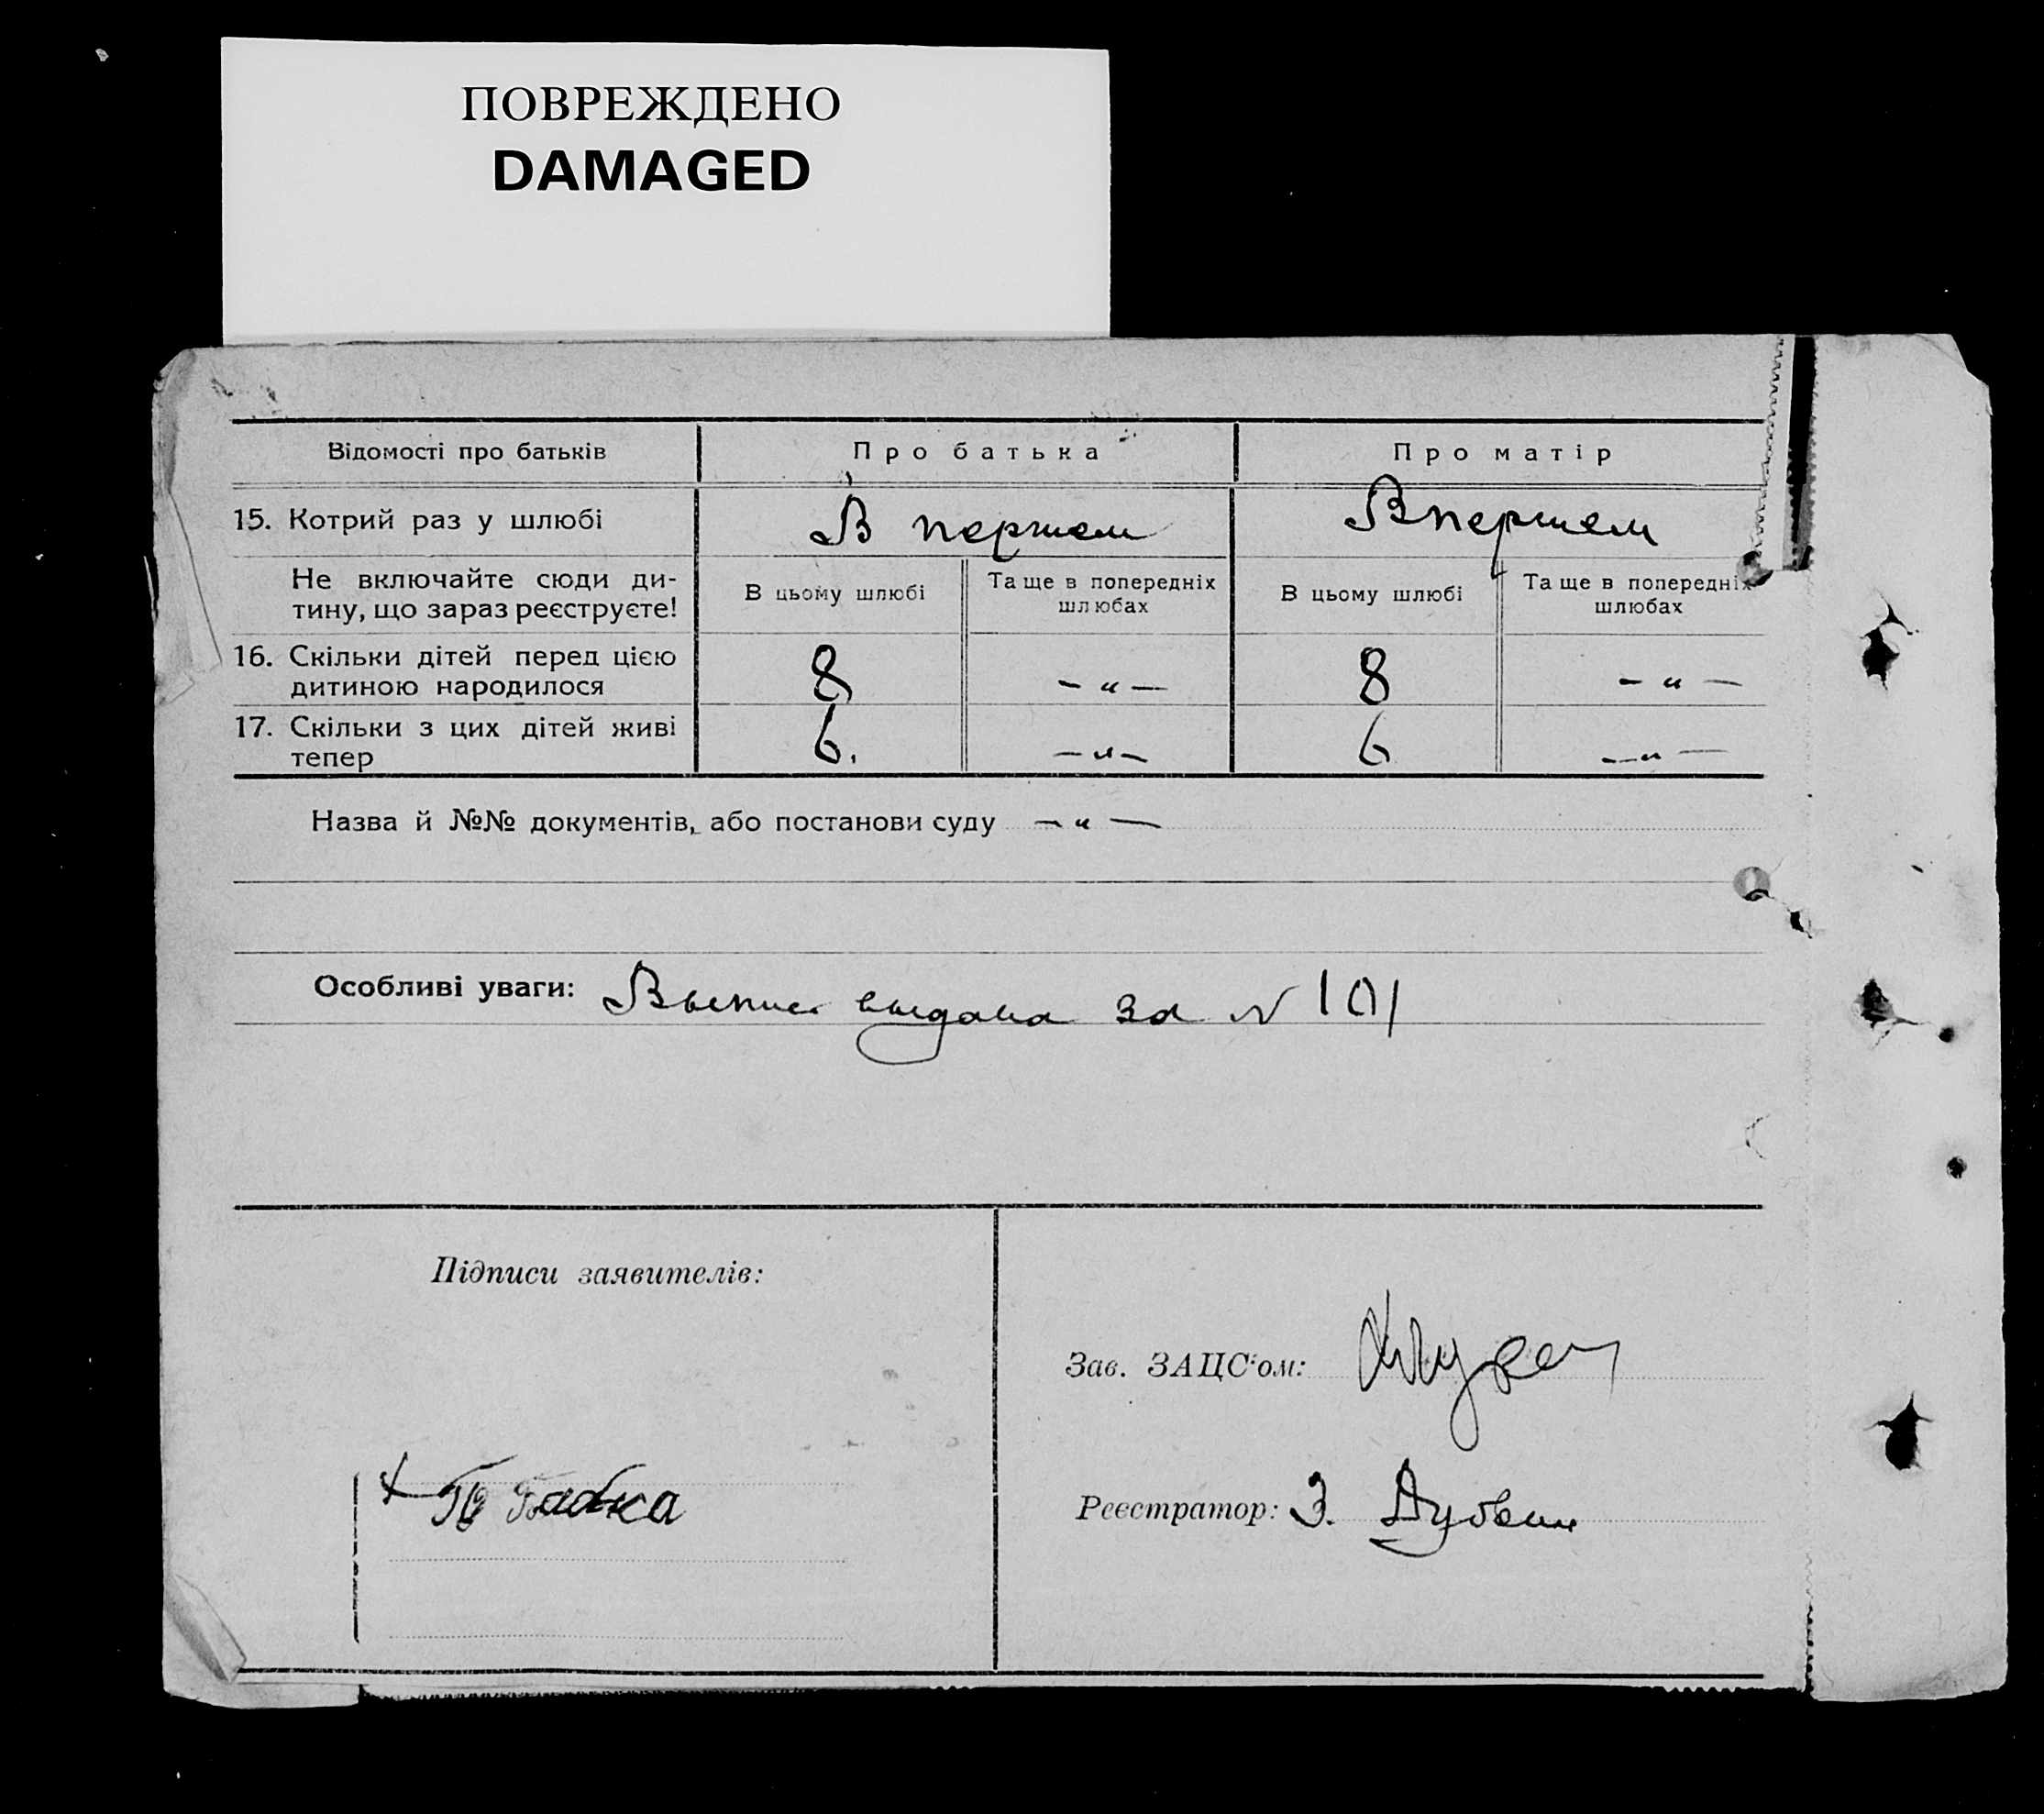 ПОВРЕЖДЕНО
DAMAGED
Відомості про батьків
Про батька
Про матір
15. Котрий раз у шлюбі
В першем
В першем
Не включайте сюди ди-
тину, що зараз реєструєте!
В цьому шлюбі
Та ще в попередніх
шлюбах
В цьому шлюбі
Та ще в попередніх
шлюбах
16. Скільки дітей перед цією
дитиною народилося
8
– „ –
8
– „ –
17. Скільки з цих дітей живі
тепер
6.
– „ –
6
– „ –
Назва й №№ документів, або постанови суду – „ –
Особливі уваги: выдана за N 101
Підписи заявителів:
Зав. ЗАЦС'ом:
Реєстратор: З.